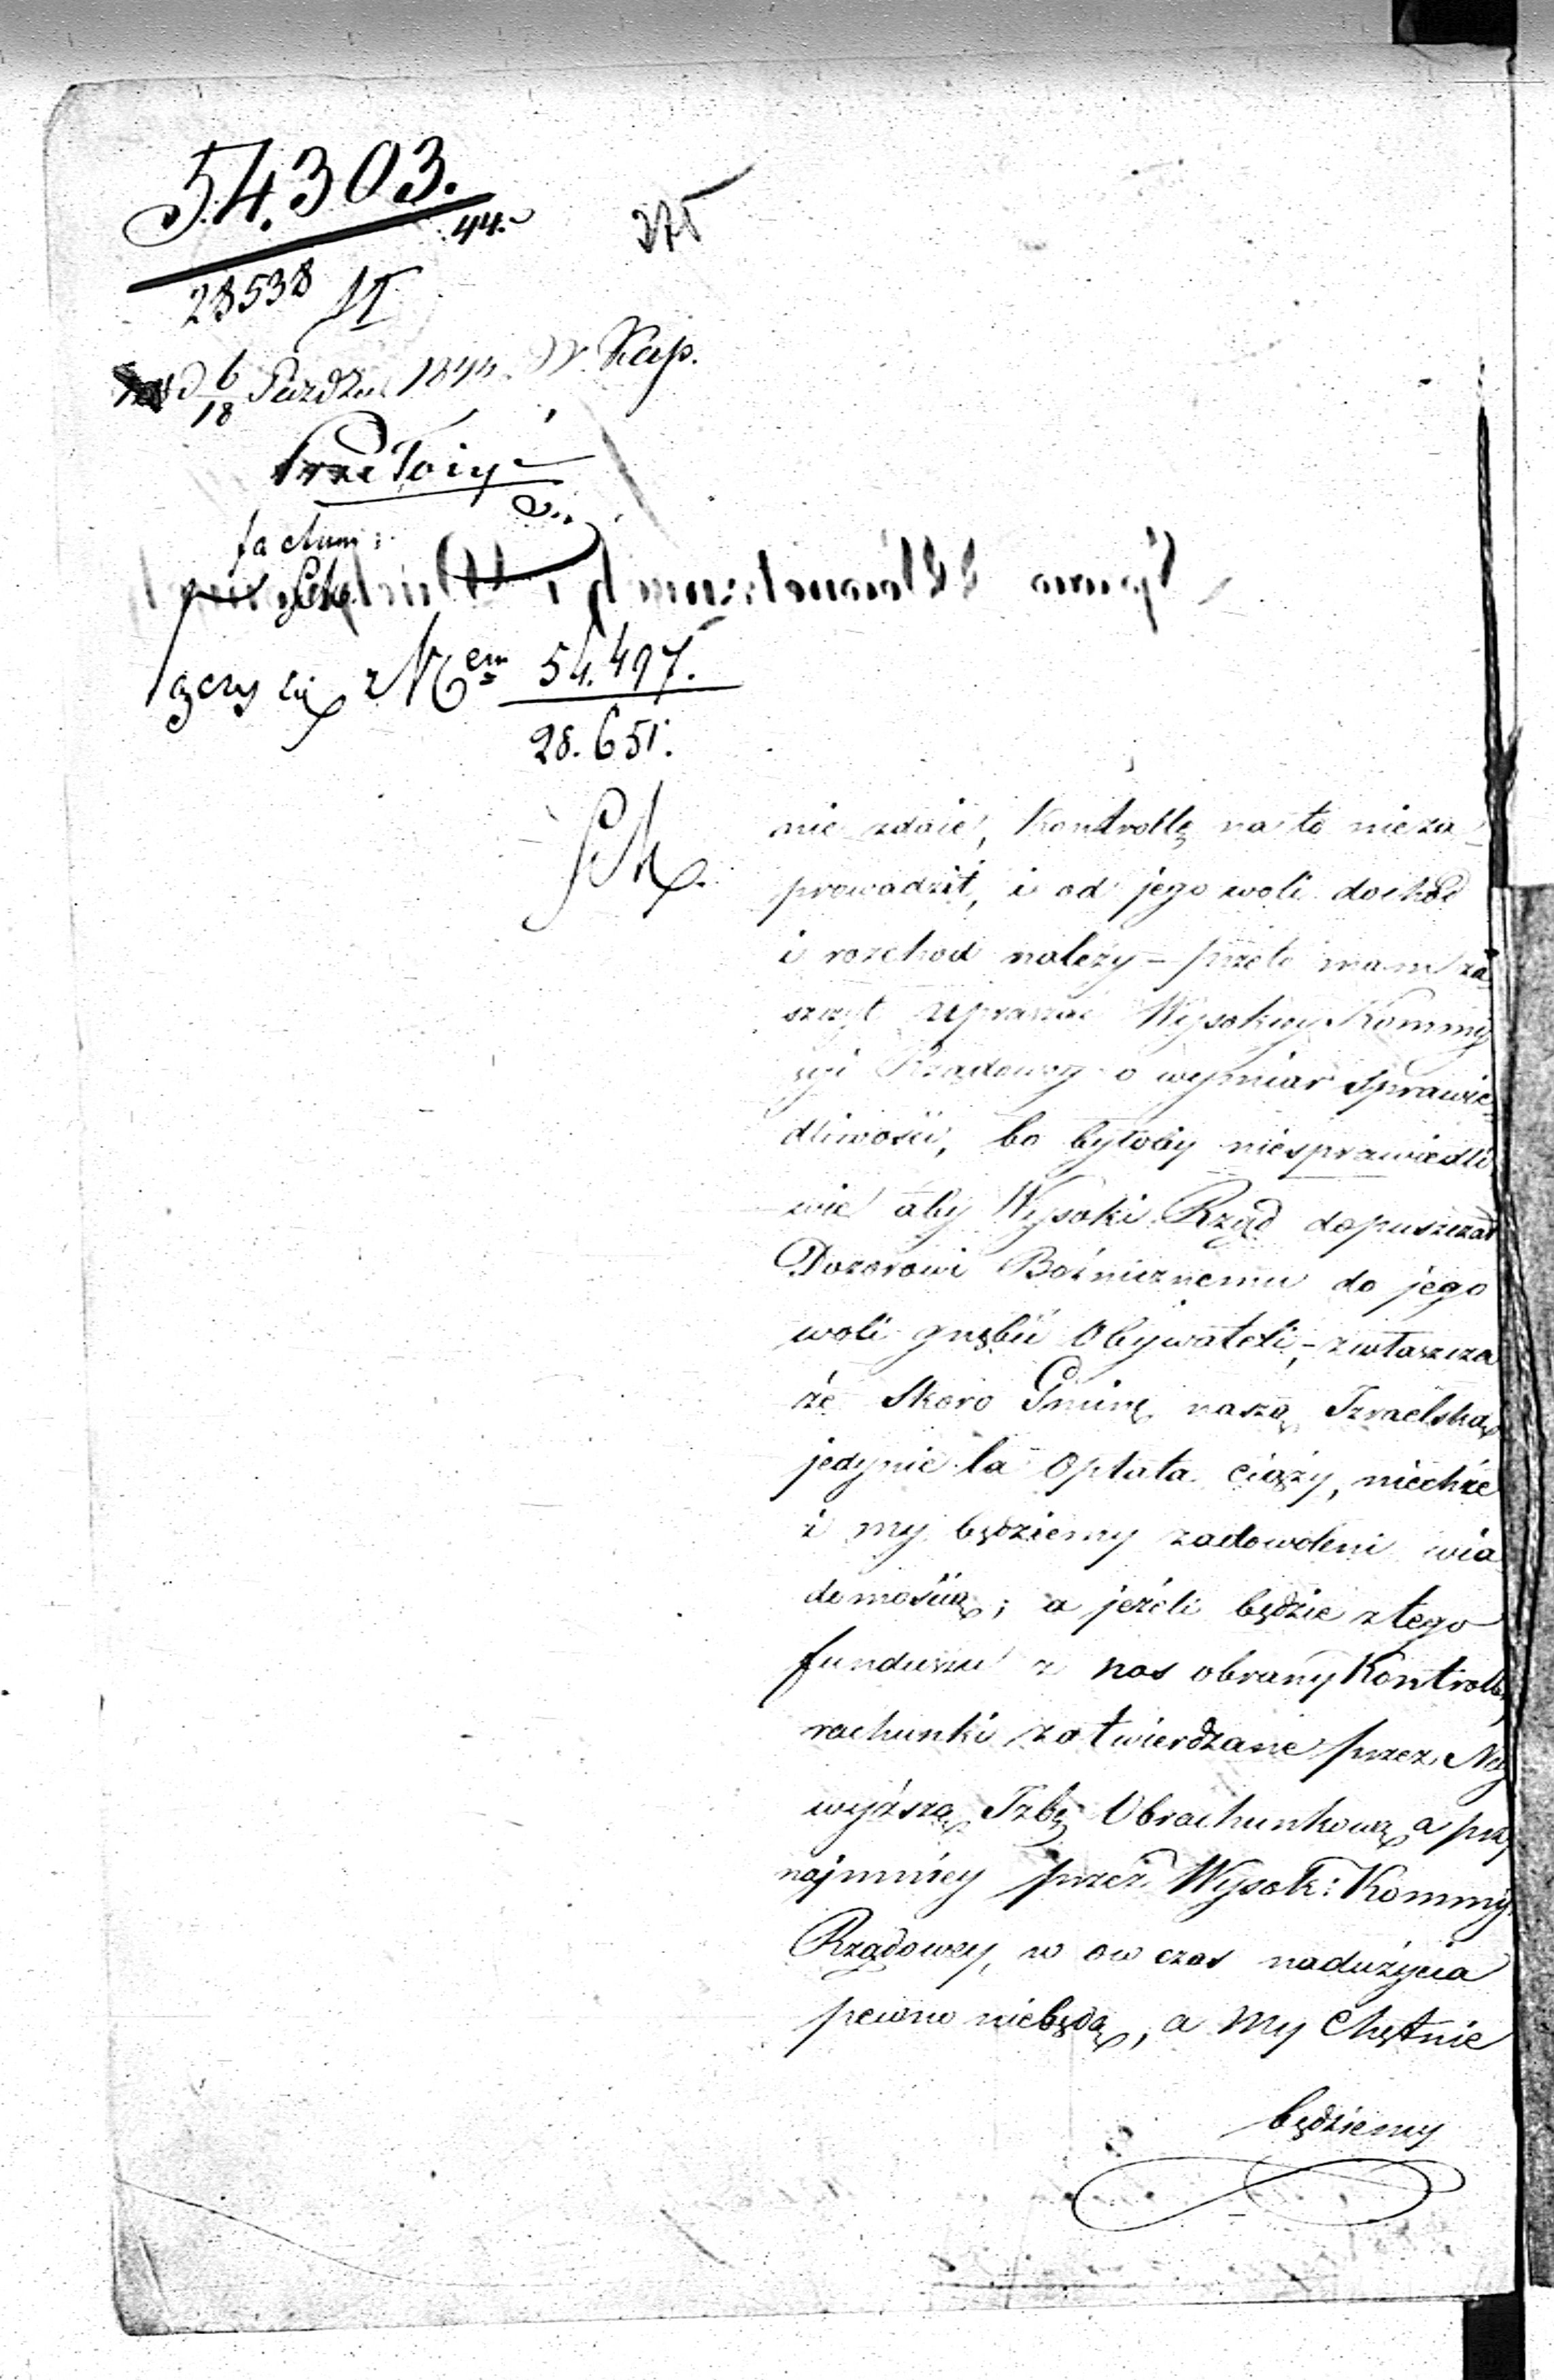 54.303.
44.
28538
II
375
d 6/18 Paźdz. 1844 W. Kap.
Przełożyć
factum:
łączy się z Nrem 54.497.
28.651.
nie zdaie, Kontrollę na to nieza
prowadził, i od jego woli dochód
i rozchod należy - przeto mam za
szczyt upraszać Wysokiey Kommi
syi Rządowey o wymiar sprawie
dliwości, bo byłoby niesprawiedli
wie aby Wysoki Rząd dopuszczał
Dozorowi Bożnicznemu do jego
woli gnębić Obywateli, - zwłaszcza
że skoro Gminę naszą Izraelską
jedynie ta Opłata ciąży, niechże
i my będziemy zadowoleni wia
domością; a jeżeli będzie z tego
funduszu z nas obrany Kontroller
rachunki zatwierdzane przez Nay
wyższą Izbę Obrachunkową a przy
najmniey przez Wysok: Kommiy
Rządowey, w ow czas nadużycia
pewno niebędą, a My Chętnie
będziemy